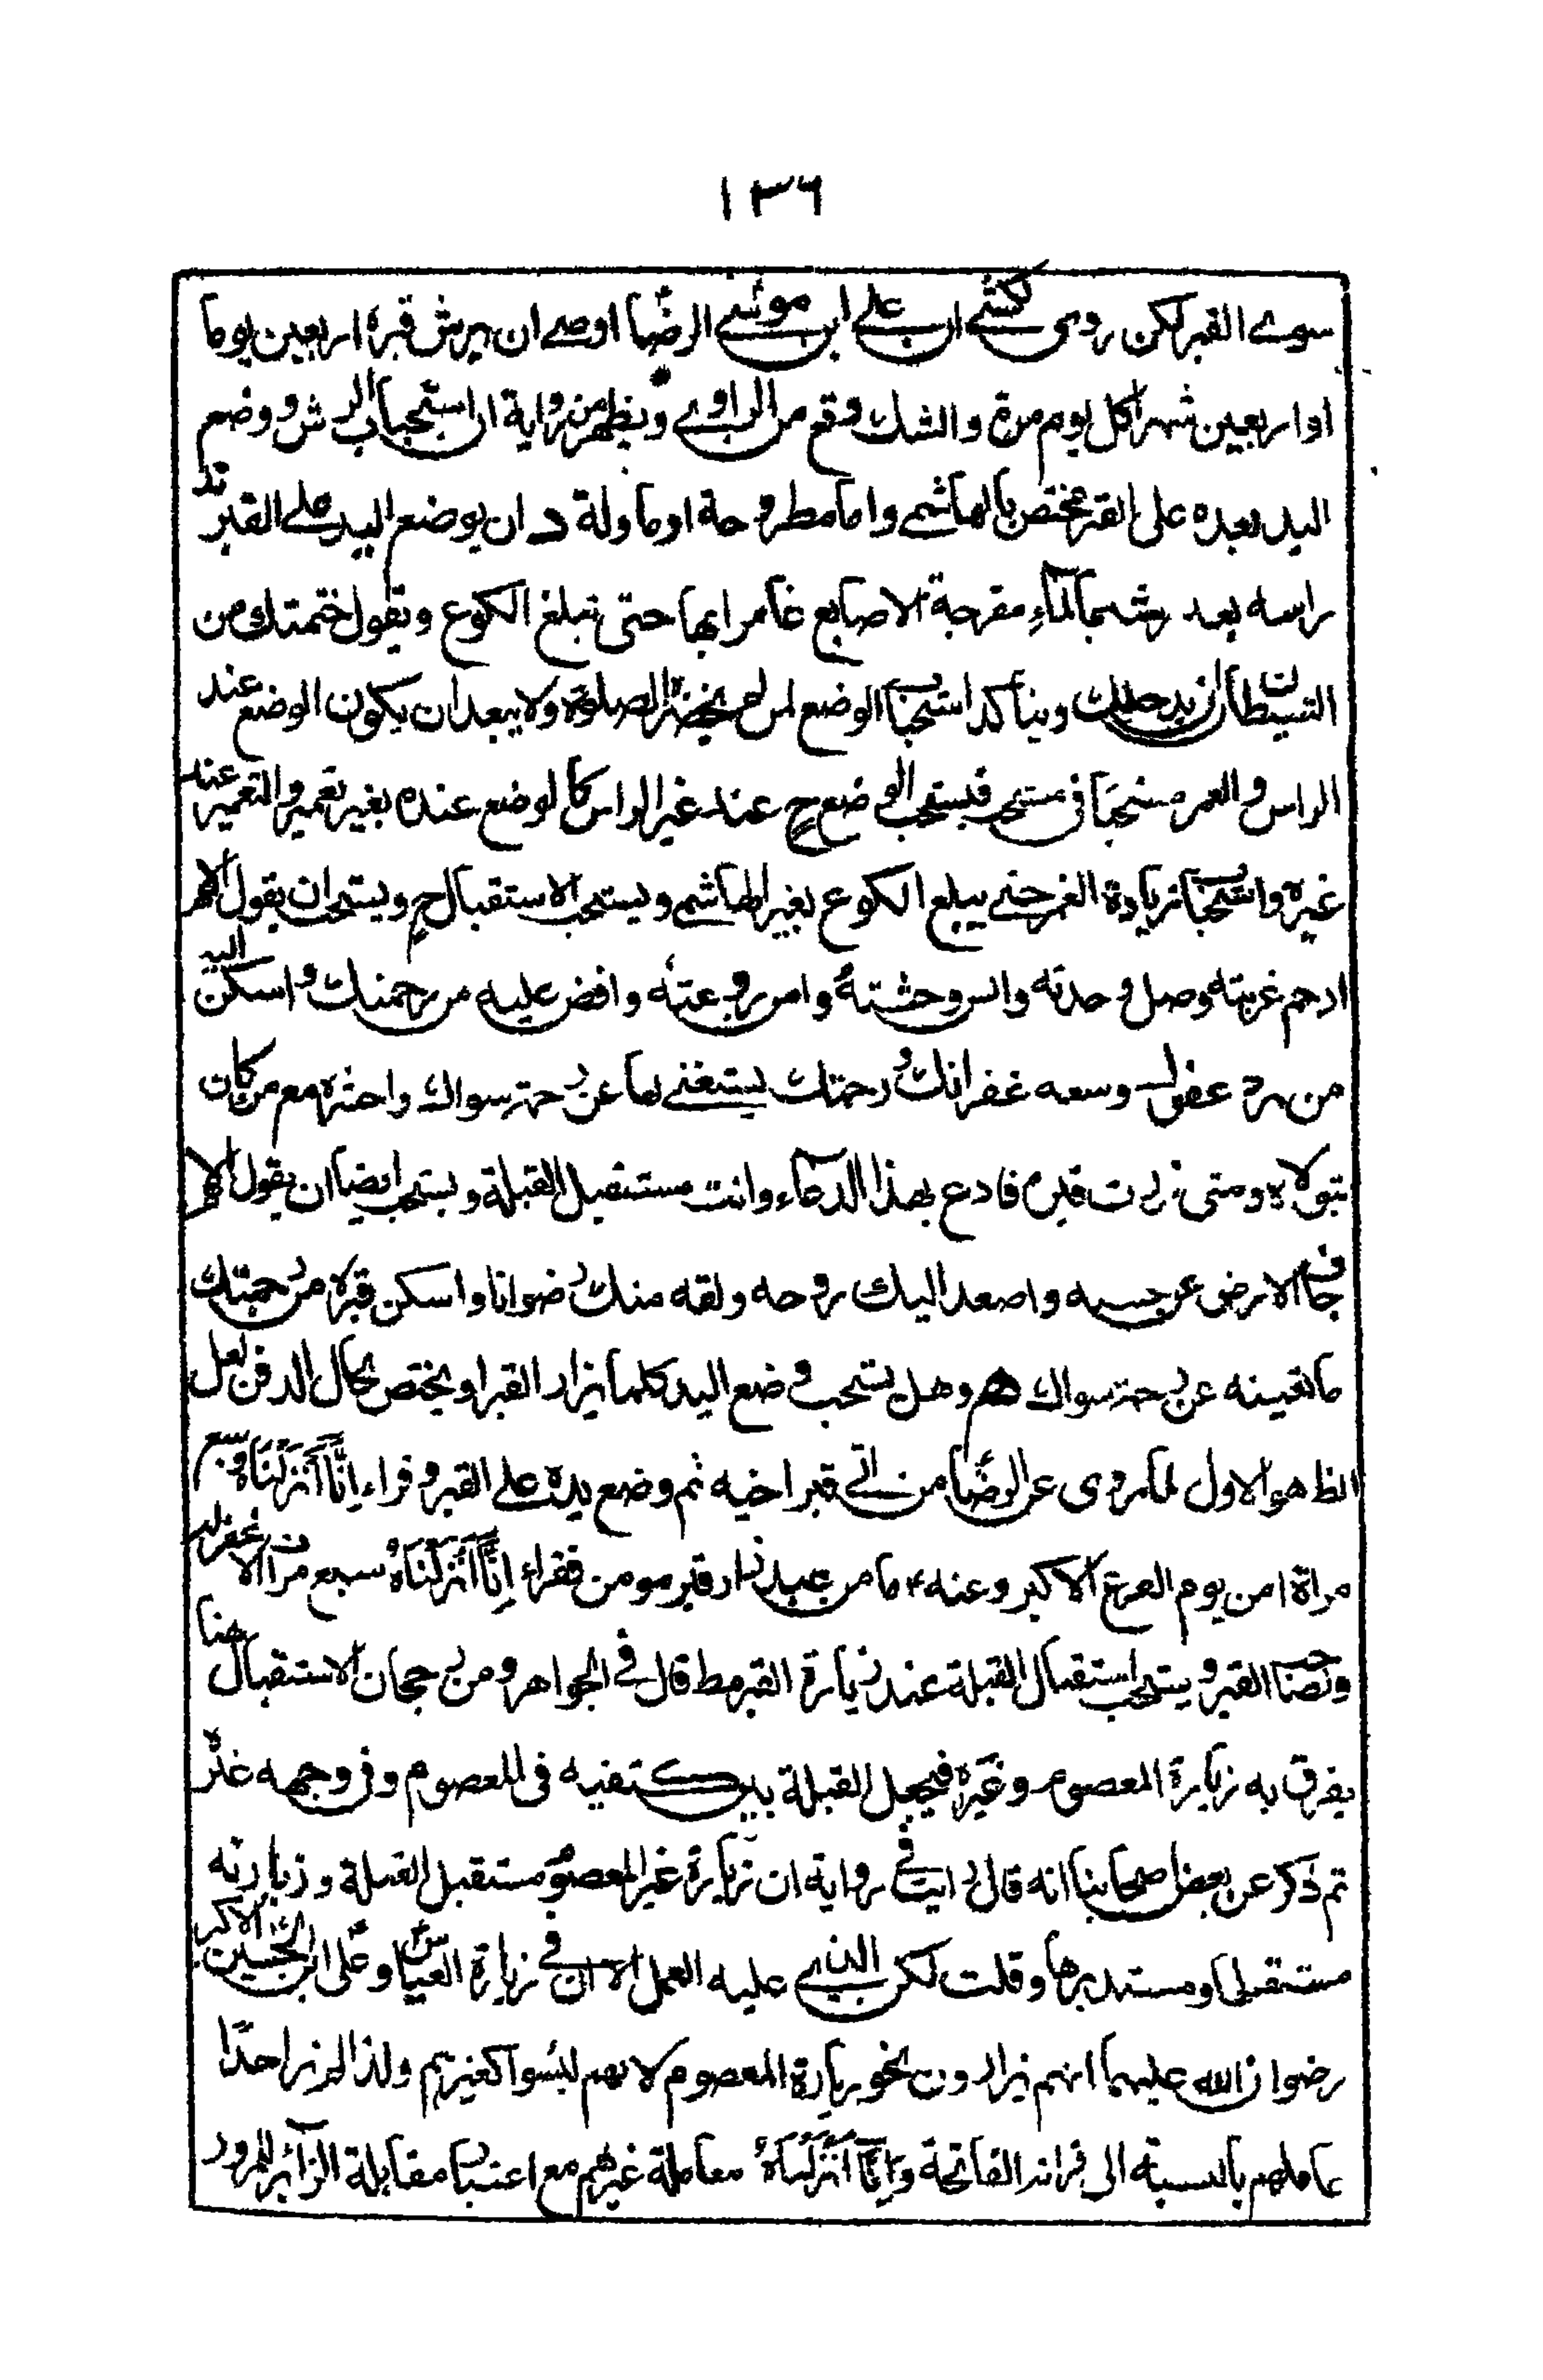 ١٣٦
سوى القبر لكن روى كشى ان على ابن موسى الرضا اوصى ان يرش قبره اربعين يوما
او اربعين شهرا كل يوم مرة والشك وقع من الراوى ويظهر من رواية ان استحباب الرش و وضع
اليد بعده على القبر مختص بالهاشمى واما مطروحة او ماولة د ان يوضع اليد على القبر عند
راسه بعد رشه بالماء مفرجة الاصابع غامرا بها حتى تبلغ الكوع وتقول ختمتك من
الشيطان ان يدخلك ويتأكد استحباب الوضع لمن لم يحضر الصلوة ولا يبعد ان يكون الوضع عند
الراس والغمر مستحبا فى مستحب فيستحب الوضع ح عند غير الراس كالوضع عنده بغير تغمير والتغمير عند
غيره واستحباب زيادة الغمر حتى يبلع الكوع بغير الهاشمى ويستحب الاستقبال ح ويستحب ان يقول اللهم
ارحم غربته وصل وحدته وانس وحشته وامن روعته وافض عليه من رحمتك واسكن اليه
من برد عفوك وسعه غفرانك ورحمتك يستغنى بها عن رحمة سواك واحشره مع من كان
يتولاه ومتى زرت قبره فادع بهذا الدعاء وانت مستقبل القبلة ويستحب ايضا ان يقول اللهم
جاف الارض عن جسبه واصعد اليك روحه ولقه منك رضوانا واسكن قبره من رحمتك
ما تغينه عن رحمة سواك هم وهل يستحب وضع اليد كلما يزار القبر او يختص بحال الدفن لعل
الظ هو الاول لما روى عن الرضا من اتى قبر اخيه ثم وضع يده على القبر وقراء اِنَّا اَنْزَلْنَاهُ سبع
مراة امن يوم الفزع الاكبر وعنه ع ما من عبد زار قبر مومن فقراء اِنَّا اَنْزَلْنَاهُ سبع مرات الا غفر له
ولصاحب القبر ويستحب استقبال القبلة عند زيارة القبر مط قال فى الجواهر ومن رجحان الاستقبال هنا
يفرق به زيارة المعصوم وغيره فيجعل القبلة بين كتفيه فى المعصوم وفى وجهه غيره
ثم ذكر عن بعض اصحابنا انه قال رايت فى رواية ان زيارة غير المعصوم مستقبل القبلة وزيارته
مستقبلها ومستدبرها وقلت لكن الذى عليه العمل الان فى زيارة العباس وعلى ابن الحسين الاكبر
رضوان الله عليهما انهم يزارون بنحو زيارة المعصوم لانهم ليسوا كغيرهم ولذا لم نر احدا
عاملهم بالنسبة الى قرائة الفاتحة وَاِنَّا اَنْزَلْنَاهُ معاملة غيرهم مع اعتبار مقابلة الزائر للمزور